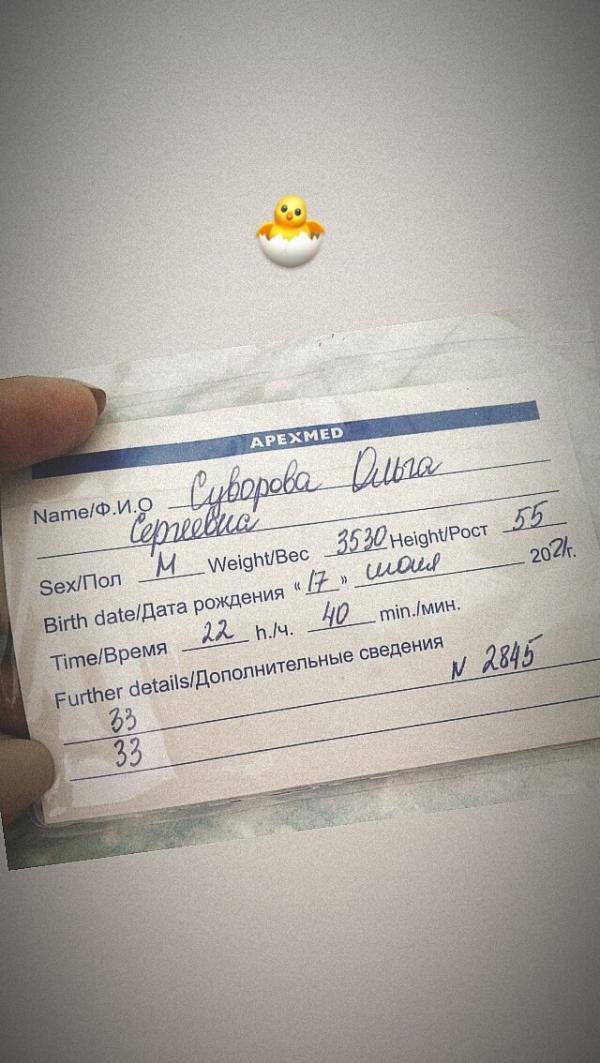 APEXMED
Name/Ф.И.О Суворова Ольга
Сергеевна
Sex/Пол М Weight/Вес 3530 Height/Рост 55
Birth date/Дата рождения «17» июля 2021г.
Time/Время 22 h./ч. 40 min./мин.
Further details/Дополнительные сведения
N 2845
33
33